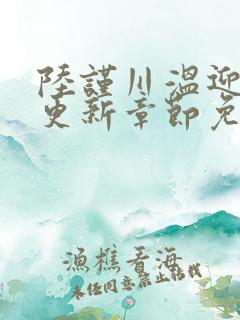 陸謹川溫迎
更新章節免
漁樵看海
未经同意禁止转载